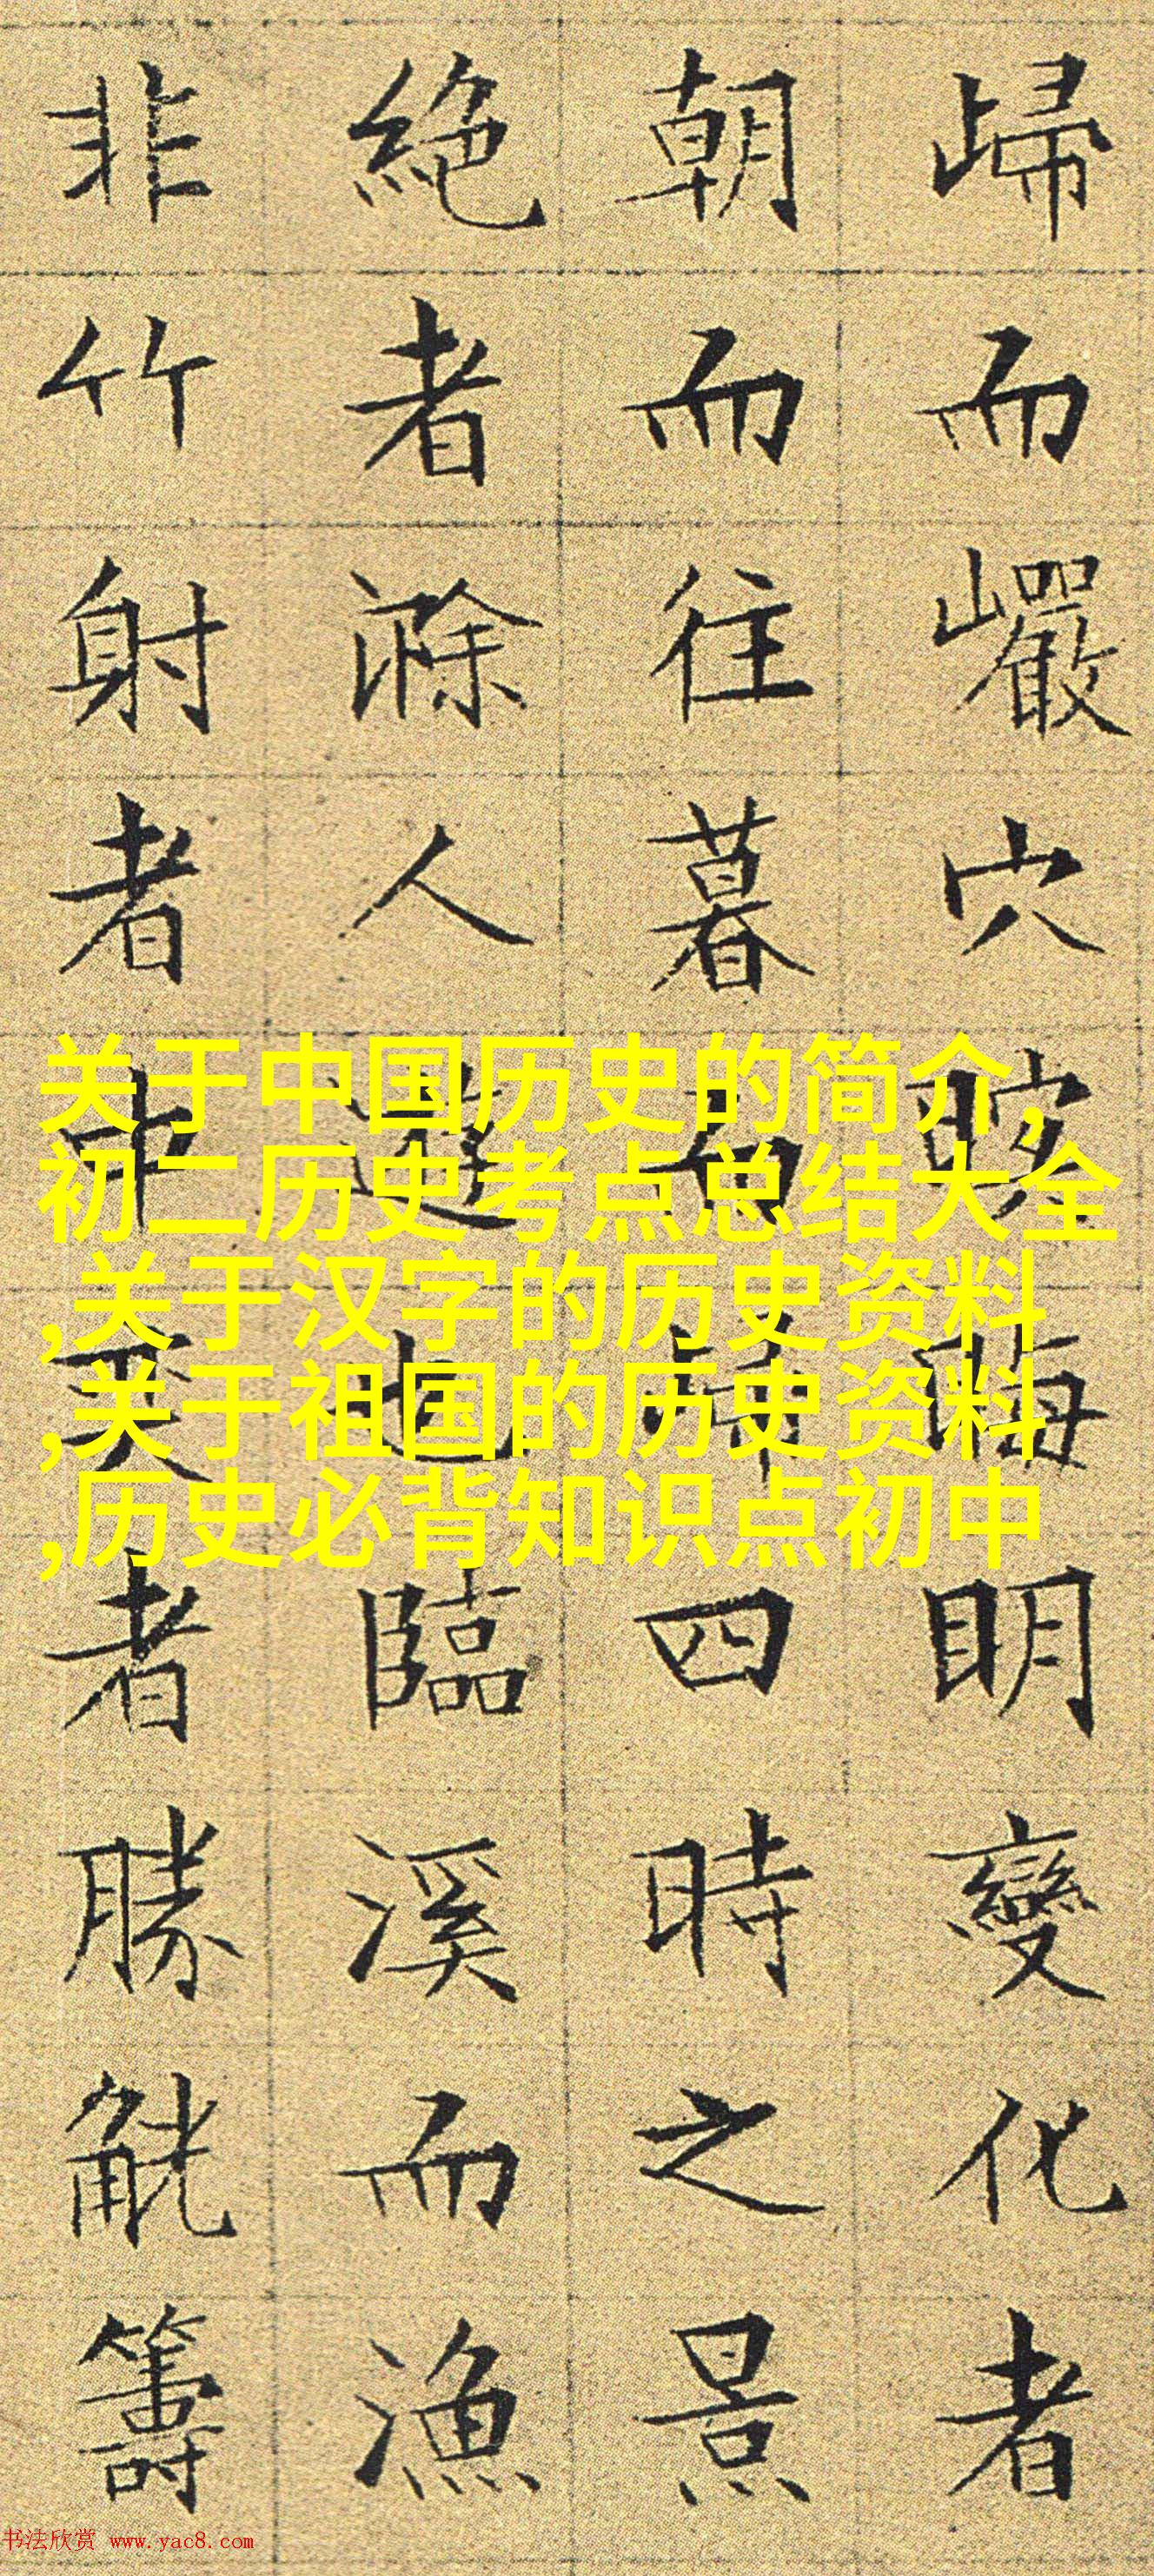 歸而巗穴暝晦明變化者
朝而往暮而歸四時之景
絶者滁人遊也臨溪而漁
非竹射者中奕者勝觥籌
关于中国历史的简介,
初二历史考点总结大全
,关于汉字的历史资料
,关于祖国的历史资料
,历史必背知识点初中
书法欣赏 www.yac8.com